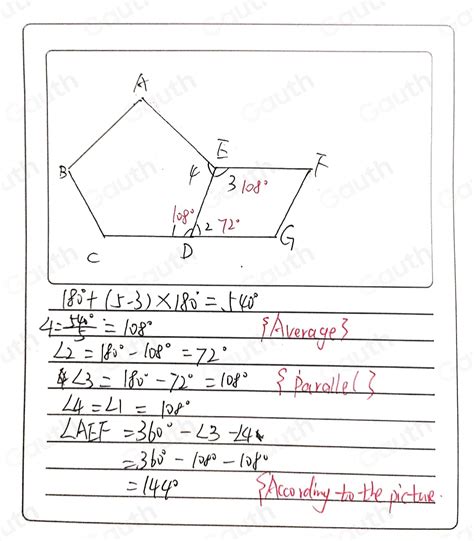 A
E
F
B
4
3 108°
108°
2 72°
C
D
G
180°+(5-3)×180°=540°
∠1=540°/5=108° {Average}
∠2=180°-108°=72°
∠3=180°-72°=108° {parallel}
∠4=∠1=108°
∠AEF=360°-∠3-∠4
=360°-108°-108°
=144° {According to the picture.